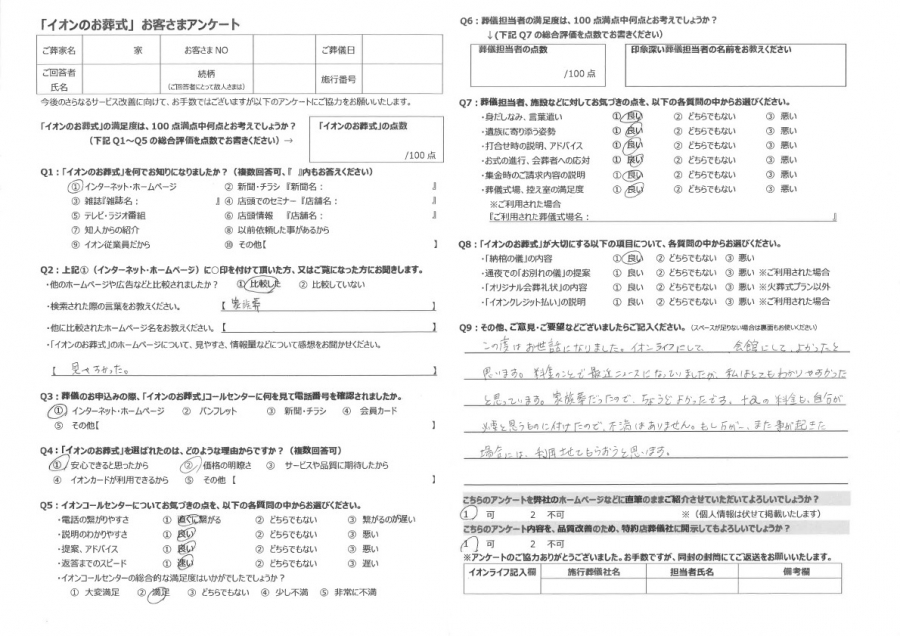 「イオンのお葬式」お客さまアンケート
ご葬家名 家 お客さまNO ご葬儀日
ご回答者氏名 続柄(ご回答者にとって故人さまは) 施行番号
今後のさらなるサービス改善に向けて、お手数ではございますが以下のアンケートにご協力をお願いいたします。
「イオンのお葬式」の満足度は、100点満点中何点とお考えでしょうか？
（下記Q1～Q5の総合評価を点数でお書きください）→
「イオンのお葬式」の点数
/100点
Q1：「イオンのお葬式」を何でお知りになりましたか？（複数回答可、『 』内もお答えください）
① インターネット・ホームページ ② 新聞・チラシ『新聞名： 』
③ 雑誌『雑誌名： 』 ④ 店頭でのセミナー『店舗名： 』
⑤ テレビ・ラジオ番組 ⑥ 店頭情報 『店舗名： 』
⑦ 知人からの紹介 ⑧ 以前依頼した事があるから
⑨ イオン従業員だから ⑩ その他【 】
Q2：上記①（インターネット・ホームページ）に○印を付けて頂いた方、又はご覧になった方にお聞きします。
・他のホームページや広告などと比較されましたか？ ① 比較した ② 比較していない
・検索された際の言葉をお教えください。 【 家族葬 】
・他に比較されたホームページ名をお教えください。【 】
・「イオンのお葬式」のホームページについて、見やすさ、情報量などについて感想をお聞かせください。
【 見やすかった。 】
Q3：葬儀のお申込みの際、「イオンのお葬式」コールセンターに何を見て電話番号を確認されましたか。
① インターネット・ホームページ ② パンフレット ③ 新聞・チラシ ④ 会員カード
⑤ その他【 】
Q4：「イオンのお葬式」を選ばれたのは、どのような理由からですか？（複数回答可）
① 安心できると思ったから ② 価格の明瞭さ ③ サービスや品質に期待したから
④ イオンカードが利用できるから ⑤ その他【 】
Q5：イオンコールセンターについてお気づきの点を、以下の各質問の中からお選びください。
・電話の繋がりやすさ ① 直ぐに繋がる ② どちらでもない ③ 繋がるのが遅い
・説明のわかりやすさ ① 良い ② どちらでもない ③ 悪い
・提案、アドバイス ① 良い ② どちらでもない ③ 悪い
・返答までのスピード ① 速い ② どちらでもない ③ 遅い
・イオンコールセンターの総合的な満足度はいかがでしたでしょうか？
① 大変満足 ② 満足 ③ どちらでもない ④ 少し不満 ⑤ 非常に不満
Q6：葬儀担当者の満足度は、100点満点中何点とお考えでしょうか？
↓（下記Q7の総合評価を点数でお書きください）
葬儀担当者の点数 印象深い葬儀担当者の名前をお教えください
/100点
Q7：葬儀担当者、施設などに対してお気づきの点を、以下の各質問の中からお選びください。
・身だしなみ、言葉遣い ① 良い ② どちらでもない ③ 悪い
・遺族に寄り添う姿勢 ① 良い ② どちらでもない ③ 悪い
・打合せ時の説明、アドバイス ① 良い ② どちらでもない ③ 悪い
・お式の進行、会葬者への応対 ① 良い ② どちらでもない ③ 悪い
・集金時のご請求内容の説明 ① 良い ② どちらでもない ③ 悪い
・葬儀式場、控え室の満足度 ① 良い ② どちらでもない ③ 悪い
※ご利用された場合
『ご利用された葬儀式場名： 』
Q8：「イオンのお葬式」が大切にする以下の項目について、各質問の中からお選びください。
・「納棺の儀」の内容 ① 良い ② どちらでもない ③ 悪い
・通夜での「お別れの儀」の提案 ① 良い ② どちらでもない ③ 悪い ※ご利用された場合
・「オリジナル会葬礼状」の内容 ① 良い ② どちらでもない ③ 悪い ※火葬式プラン以外
・「イオンクレジット払い」の説明 ① 良い ② どちらでもない ③ 悪い ※ご利用された場合
Q9：その他、ご意見・ご要望などございましたらご記入ください。（スペースが足りない場合は裏面もお使いください）
この度はお世話になりました。イオンライフにして、 会館にして、よかったと
思います。料金のことで最近ニュースになっていましたが、私はとてもわかりやすかった
と思っています。家族葬だったので、ちょうどよかったです。 の料金も、自分が
必要と思うものに付けたので、不満はありません。もし万が一、また事が起きた
場合には、利用させてもらおうと思います。
こちらのアンケートを弊社のホームページなどに直筆のままご紹介させていただいてよろしいでしょうか？
1 可 2 不可 ※（個人情報は伏せて掲載いたします）
こちらのアンケート内容を、品質改善のため、特約店葬儀社に開示してもよろしいでしょうか？
1 可 2 不可
※アンケートのご協力ありがとうございました。お手数ですが、同封の封筒にてご返送をお願いいたします。
イオンライフ記入欄 施行葬儀社名 担当者氏名 備考欄